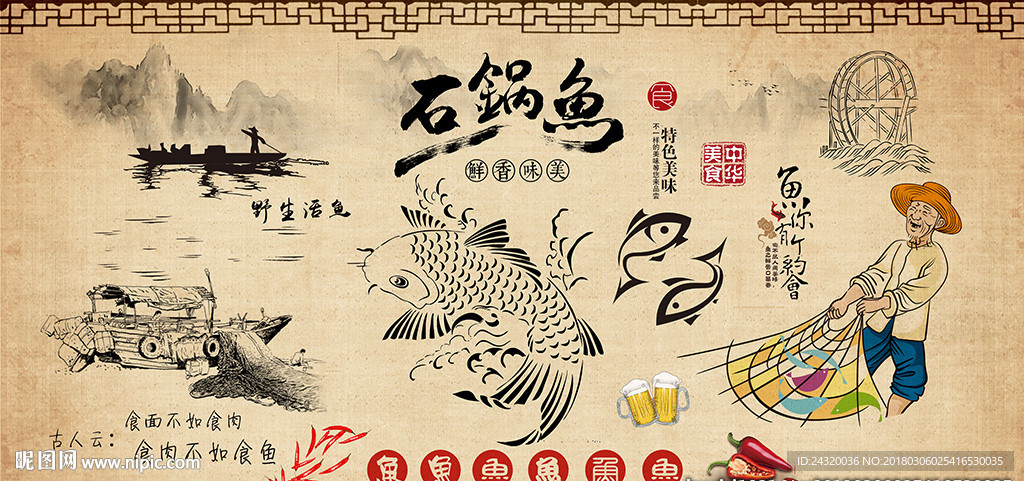 石鍋魚
鮮香味美
食
特色美味
不一样的美味等您来品尝
中华
美食
野生活鱼
魚你有个約會
古人云：
食面不如食肉
食肉不如食鱼
魚 魚 魚 魚 魚 魚
昵图网 www.nipic.com
ID:24320036 NO:20180306025416530035